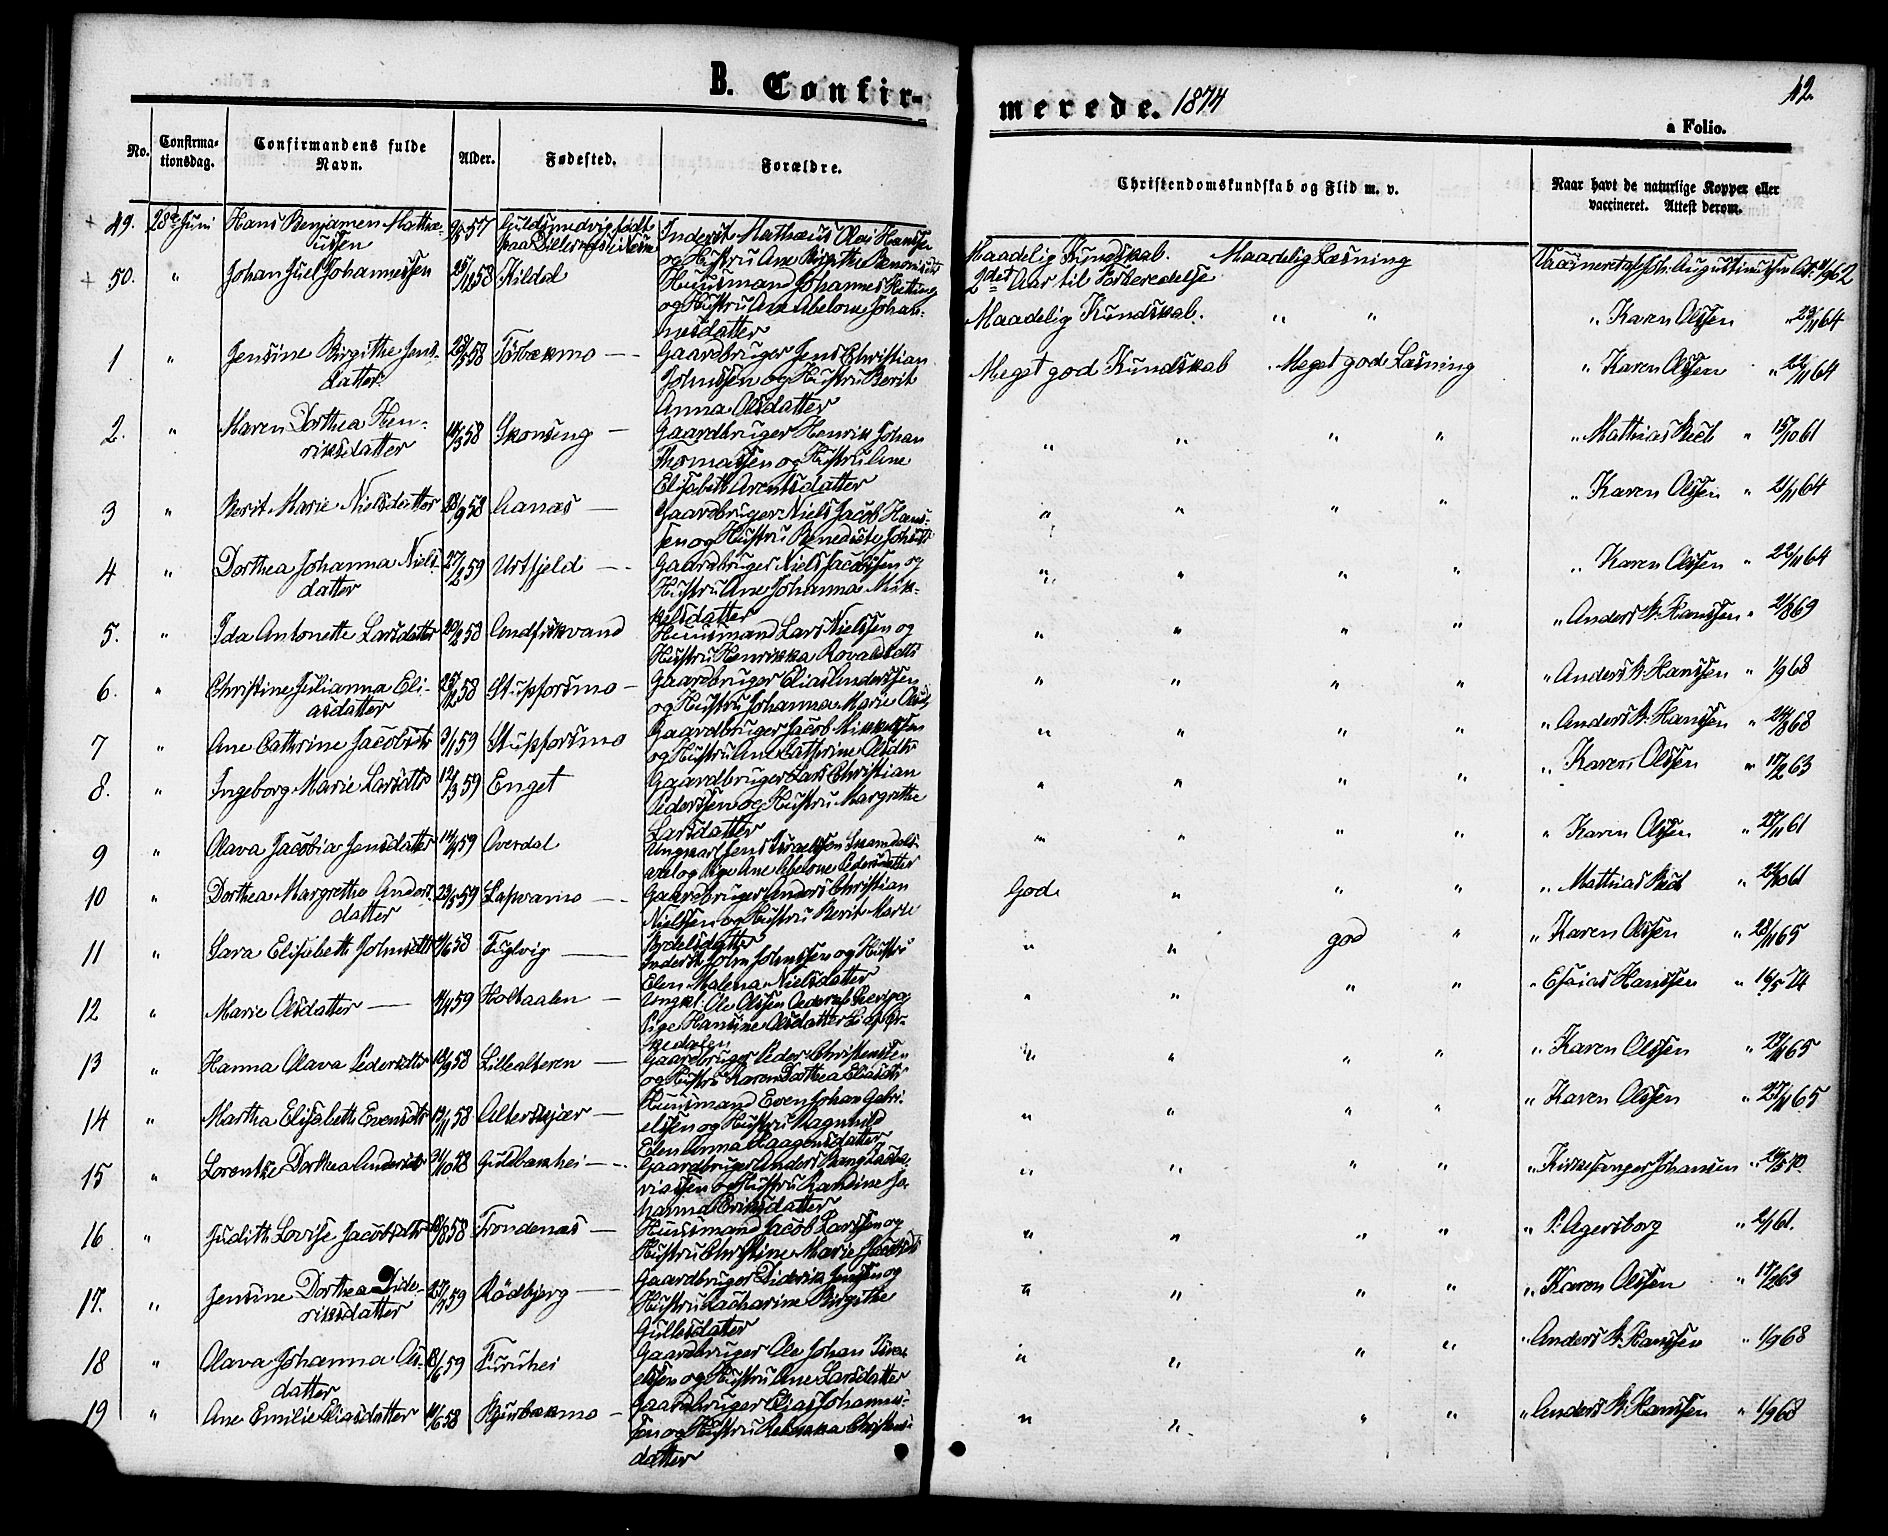 B. Confir-
merede. 1874
12.
a Folio.
No.
Confirma-
tionsdag.
Confirmandens fulde
Navn.
Alder.
Fødested.
Forældre.
Christendomskundskab og Flid m. v.
Naar havt de naturlige Kopper eller
vaccineret. Attest derom.
49. 28de Juni Hans Benjamen Mathæ- 57 Guldsmedvig født Inderst Mathæus Olai Hanssen
ussen og Hustru Ane Birgithe
Maadelig Kundskab. Maadelig Læsning
2det Aar til Forberedelse
50. " Johan Juel Johannessen 58 Kildal Huusmand Johannes
og Hustru Ane Abelone Johan-
nesdatter
Maadelig Kundskab. " " " Karen Olssen " 64
1 " Jensine Birgithe Jens- 58 Gaardbruger Jens Christian
datter Johnssen og Hustru Berit
Anna Olsdatter
Meget god Kundskab Meget gode Læsning " Karen Olssen " 22/11 64
2. " Maren Dorthea Hen- 58 Skonseng — Gaardbruger Henrik Johan
riksdatter Thomassen og Hustru Ane
Elisabeth Arentsdatter
" " " " " Mathias " 15/10 61
3 " Berit Marie Nielsdatter 18/9 58 Aanæs — Gaardbruger Niels Jacob Hans-
sen og Hustru Benedicte
" " " " " Karen Olssen " 21/11 64
4 " Dorthea Johanna Niels- 27/2 59 Urtfjeld — Gaardbruger Niels Jacobssen og
datter Hustru Ane Johanna Mik-
kelsdatter
" " " " " Karen Olssen " 22/11 64
5. " Ida Antonette Larsdatter 58 Andfiskvand Huusmand Lars Nielssen og
Hustru Henrikka
" " " " " Anders Hanssen " 69
6. " Christine Julianna Eli- 58 Stupforsmo — Gaardbruger Elias Anderssen
asdatter og Hustru Johanna Marie
" " " " " Anders Hanssen " 1/9 68
7 " Ane Cathrine Jacobsdtr 3/1 59 Stupforsmo Gaardbruger Jacob Mikkelsen
og Hustru Ane Cathrine Olsdtr
" " " " " Anders Hanssen " 68
8. " Ingeborg Marie Larsdtr 12/3 59 Enget Gaardbruger Lars Christian
Pederssen og Hustru Margrethe
Larsdatter
" " " " " Karen Olssen " 63
9 " Olava Jacobia Jensdatter 59 Averdal Ungkarl Jens
og Pige Ane Abelone Pedersdatter
" " " " " Karen Olssen " 61
10 " Dorthea Margrethe Anders- 23/5 59 Lapvamo — Gaardbruger Anders Christian
datter Nielssen og Hustru Berit Marie
God " " " " Mathias " 61
11 " Sara Elisabeth Johnsdtr 58 Fuglvig — Inderst John Johnssen og Hustru
Elen Malena Nielsdatter
" " god " " Karen Olssen " 65
12 " Marie Olsdatter — 59 Holtaalen — Ungkl: Ole Olssen
Pige Hansine Olsdatter
" " " " " Esaias Hanssen " 16/5 74
13 " Hanna Olava Pedersdtr 18/9 58 Lillealteren — Gaardbruger Peder Christenssen
og Hustru Karen Dorthea Eliasdtr
" " " " " Karen Olssen " 65
14 " Martha Elisabeth Evensdtr 58 Alterskjær — Huusmand Even Johan Gabri-
elsen og Hustru Magnhild
Elen Anna Haagensdatter
" " " " " Karen Olssen " 65
15 " Lorentze Dorthea Andersdtr 58 Guldbakhei — Gaardbruger Anders Bang Zacha-
riassen og Hustru Randine Jo-
hanna Eriksdatter
" " " " " Kirkesanger Johansen "
16 " Judith Lovise Jacobsdatter 58 Trondenæs — Huusmand Jacob Larssen og
Hustru Christine Marie Jacobsdtr
" " " " " P. Agersborg " 61.
17. " Jensine Dorthea Dide- 59 Rødbjerg — Gaardbruger Diderik Jenssen og
riksdatter Hustru Zacharine Birgithe
Gullesdatter
" " " " " Karen Olssen " 63
18 " Olava Johanna Ols- 59 Furuhei Gaardbruger Ole Johan Isra-
datter elssen og Hustru Ane Larsdatter
" " " " " Anders Hanssen " 1/9 68
19 " Ane Emilie Eliasdatter 58 Gaardbruger Elias Johannes-
sen og Hustru Rebekka Christens-
datter
" " " " " Anders Hanssen " 1/9 68